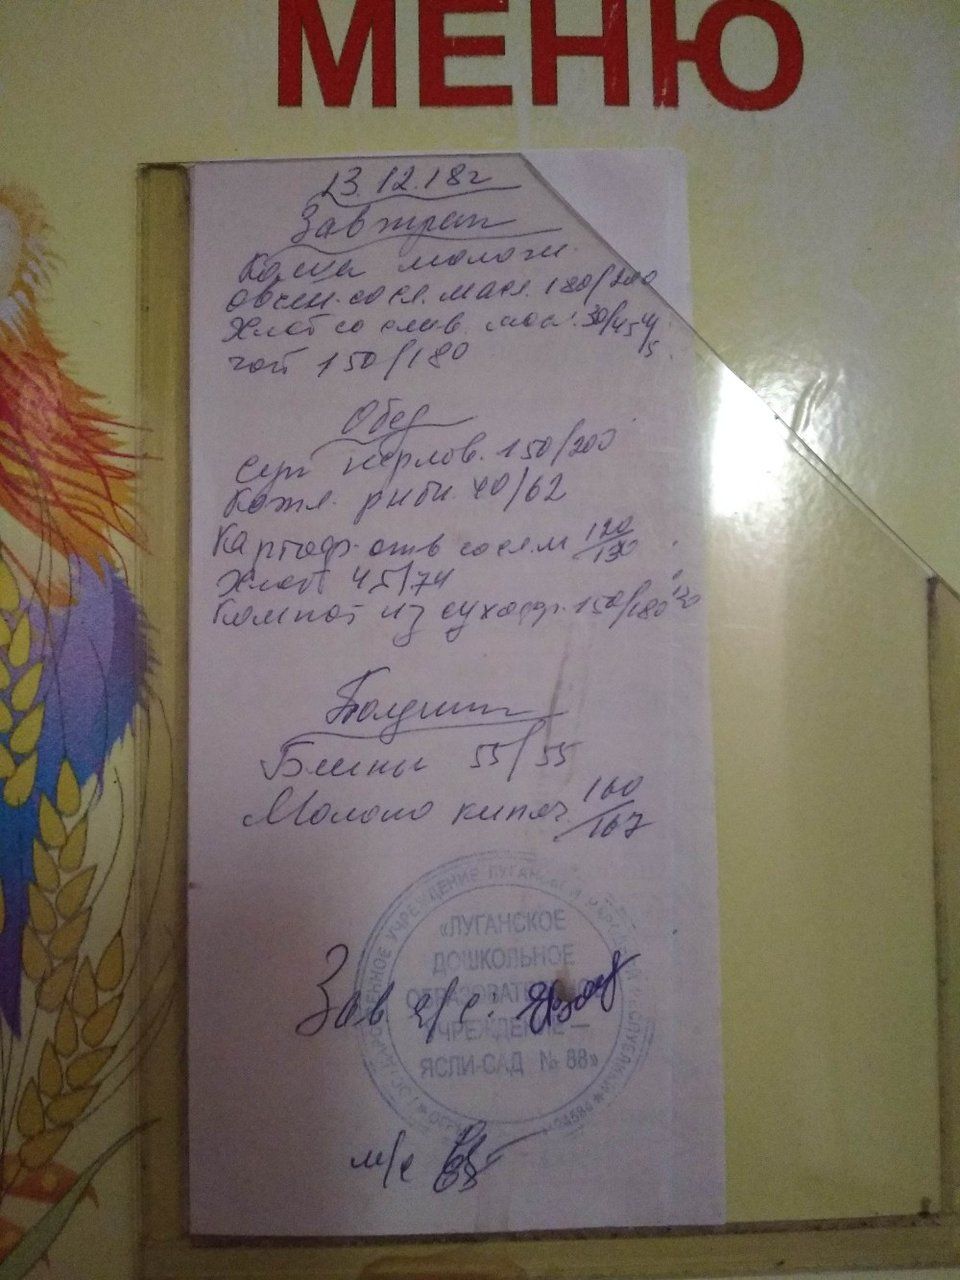 МЕНЮ
13.12.18г
Завтрак
Каша молочн.
овсян. со сл. масл. 180/200
Хлеб со слив. мас. 30/45 4/5
чай 150/180
Обед
Суп перлов. 150/200
Котл. рибн. 40/62
Картоф. отв со сл. м 120/130
Хлеб 45/74
Компот из сухофр. 150/180
Полдник
Блины 55/55
Молоко кипяч. 160/167
«ЛУГАНСКОЕ
ДОШКОЛЬНОЕ
ОБРАЗОВАТЕЛЬНОЕ
УЧРЕЖДЕНИЕ —
ЯСЛИ-САД № 88»
Зав я/с:
м/с